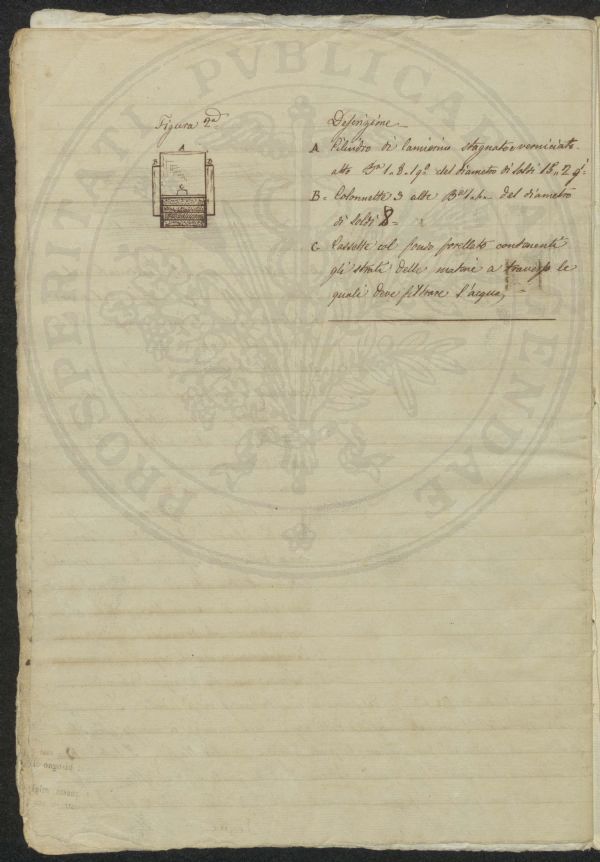 Figura 2ª
A
B
B
C
Descrizione
A Cilindro di lamierino stagnato e verniciato
alto Bª 1. 8. 1 q.º del diametro di soldi 15,, 2 q.i
B = Colonnette 3 alte Bª del diametro
di soldi 8 =
C Cassette col fondo forellato contenenti
gli strati delle materie a traverso le
quali deve filtrare l'acqua,
PROSPERITATI PVBLICAE AVGENDAE
bisogno di